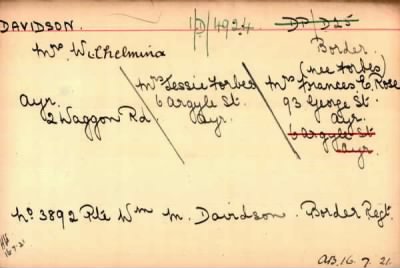 DAVIDSON. D/4924 DP/D25
Mrs Wilhelmina
Ayr.
2 Waggon Rd
Mrs Jessie Forbes
6 Argyle St.
Ayr.
Border.
(nee Forbes)
Mrs Frances E. Rose
93 George St.
Ayr.
6 Argyle St
Ayr.
No 3892 Pte Wm M. Davidson. Border Regt.
16.7.21
AB.16.7.21.